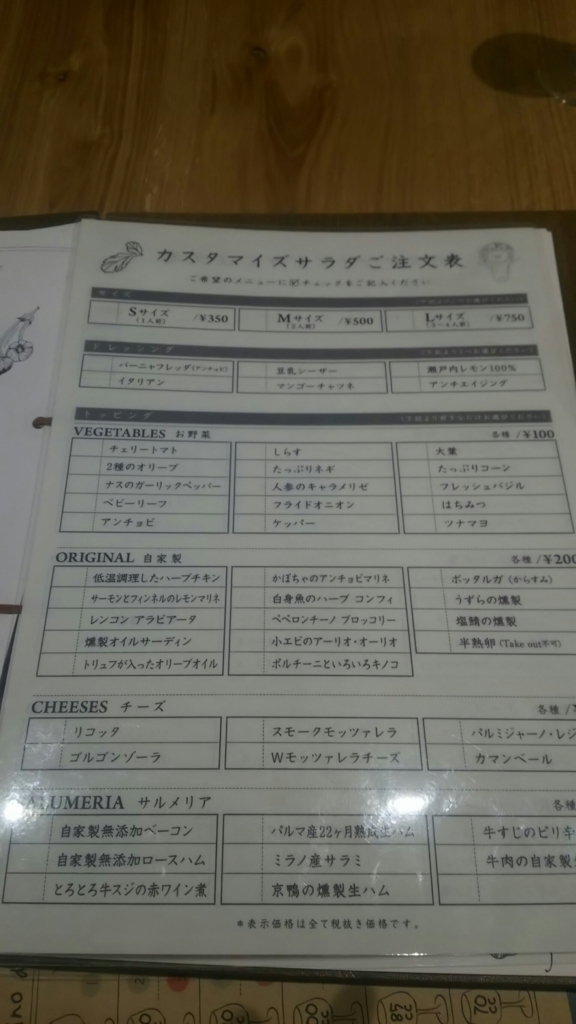 カスタマイズサラダご注文表
ご希望のメニューに☑チェックをご記入ください
サイズ
Sサイズ (1人前) /¥350 Mサイズ (2人前) /¥500 Lサイズ /¥750
ドレッシング
バーニャフレッダ(アンチョビ) 豆乳シーザー 瀬戸内レモン100%
イタリアン マンゴーチャツネ アンチエイジング
トッピング
VEGETABLES お野菜 各種 /¥100
チェリートマト しらす 大葉
2種のオリーブ たっぷりネギ たっぷりコーン
ナスのガーリックペッパー 人参のキャラメリゼ フレッシュバジル
ベビーリーフ フライドオニオン はちみつ
アンチョビ ケッパー ツナマヨ
ORIGINAL 自家製 各種 /¥200
低温調理したハーブチキン かぼちゃのアンチョビマリネ ボッタルガ (からすみ)
サーモンとフィンネルのレモンマリネ 白身魚のハーブ コンフィ うずらの燻製
レンコン アラビアータ ペペロンチーノ ブロッコリー 塩鯖の燻製
燻製オイルサーディン 小エビのアーリオ・オーリオ 半熟卵 (Take out不可)
トリュフが入ったオリーブオイル ポルチーニといろいろキノコ
CHEESES チーズ 各種 /¥
リコッタ スモークモッツァレラ パルミジャーノ・レジ
ゴルゴンゾーラ Wモッツァレラチーズ カマンベール
ALUMERIA サルメリア 各種
自家製無添加ベーコン パルマ産22ヶ月熟成生ハム 牛すじのピリ辛
自家製無添加ロースハム ミラノ産サラミ 牛肉の自家製
とろとろ牛スジの赤ワイン煮 京鴨の燻製生ハム
*表示価格は全て税抜き価格です。